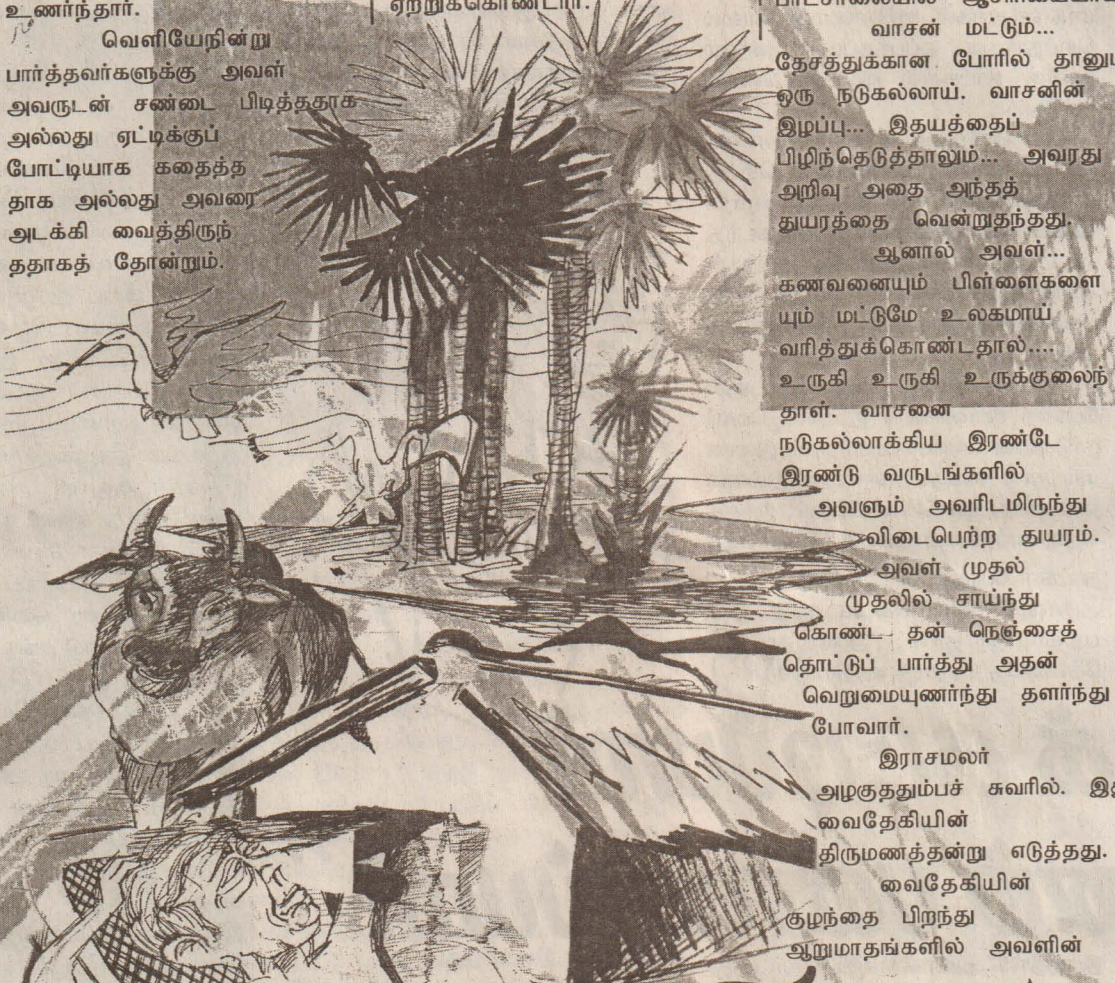 உணர்ந்தார்.
வெளியேநின்று
பார்த்தவர்களுக்கு அவள்
அவருடன் சண்டை பிடித்ததாக
அல்லது ஏட்டிக்குப்
போட்டியாக கதைத்த
தாக அல்லது அவரை
அடக்கி வைத்திருந்
ததாகத் தோன்றும்.
ஏற்றுக்கொண்டார்.
வாசன் மட்டும்...
தேசத்துக்கான போரில் தானும்
ஒரு நடுகல்லாய். வாசனின்
இழப்பு... இதயத்தைப்
பிழிந்தெடுத்தாலும்... அவரது
அறிவு அதை அந்தத்
துயரத்தை வென்றுதந்தது.
ஆனால் அவள்...
கணவனையும் பிள்ளைகளை
யும் மட்டுமே உலகமாய்
வரித்துக்கொண்டதால்....
உருகி உருகி உருக்குலைந்
தாள். வாசனை
நடுகல்லாக்கிய இரண்டே
இரண்டு வருடங்களில்
அவளும் அவரிடமிருந்து
விடைபெற்ற துயரம்.
அவள் முதல்
முதலில் சாய்ந்து
கொண்ட தன் நெஞ்சைத்
தொட்டுப் பார்த்து அதன்
வெறுமையுணர்ந்து தளர்ந்து
போவார்.
இராசமலர்
அழகுததும்பச் சுவரில்.
வைதேகியின்
திருமணத்தன்று எடுத்தது.
வைதேகியின்
குழந்தை பிறந்து
ஆறுமாதங்களில் அவளின்